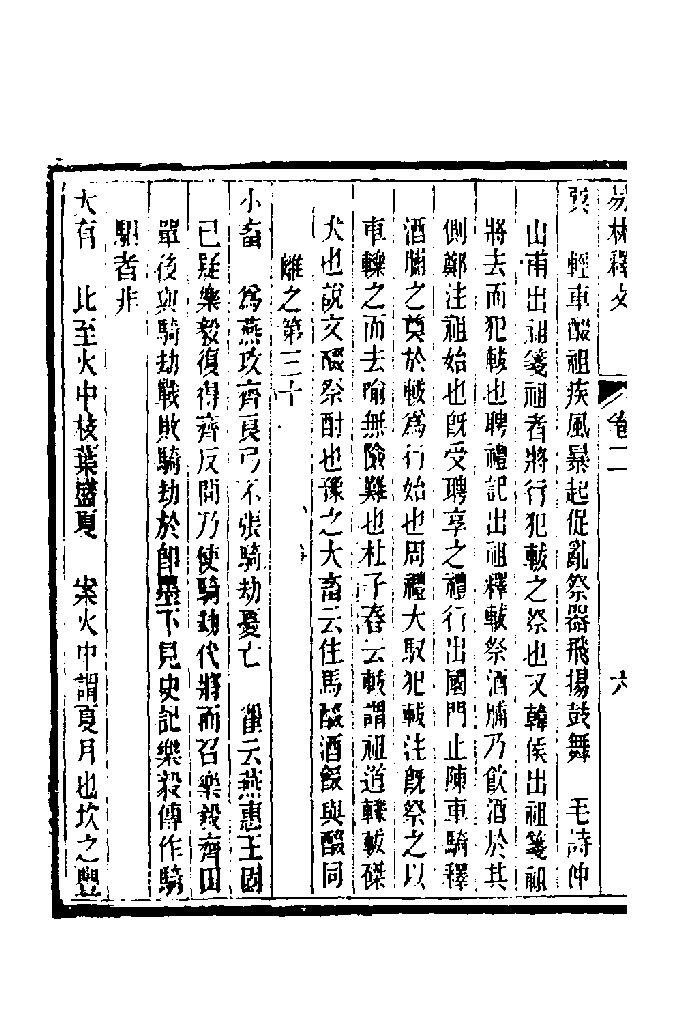 易林釋文 卷二 六
巽 輕車醊祖疾風暴起促亂祭器飛揚鼓舞 毛詩仲
山甫出祖箋祖者將行犯軷之祭也又韓侯出祖箋祖
將去而犯軷也聘禮記出祖釋軷祭酒脯乃飲酒於其
側鄭注祖始也旣受聘享之禮行出國門止陳車騎釋
酒脯之奠於軷爲行始也周禮大馭犯軷注旣祭之以
車轢之而去喻無險難也杜子春云軷謂祖道轢軷磔
犬也說文醊祭酹也豫之大畜云住馬醊酒餟與醊同
離之第三十
小畜 爲燕攻齊良弓不張騎劫憂亡 翟云燕惠王固
已疑樂毅復得齊反間乃使騎劫代將而召樂毅齊田
單後與騎劫戰敗騎劫於卽墨下見史記樂毅傳作騎
駔者非
大有 比至火中枝葉盛夏 案火中謂夏月也坎之豐